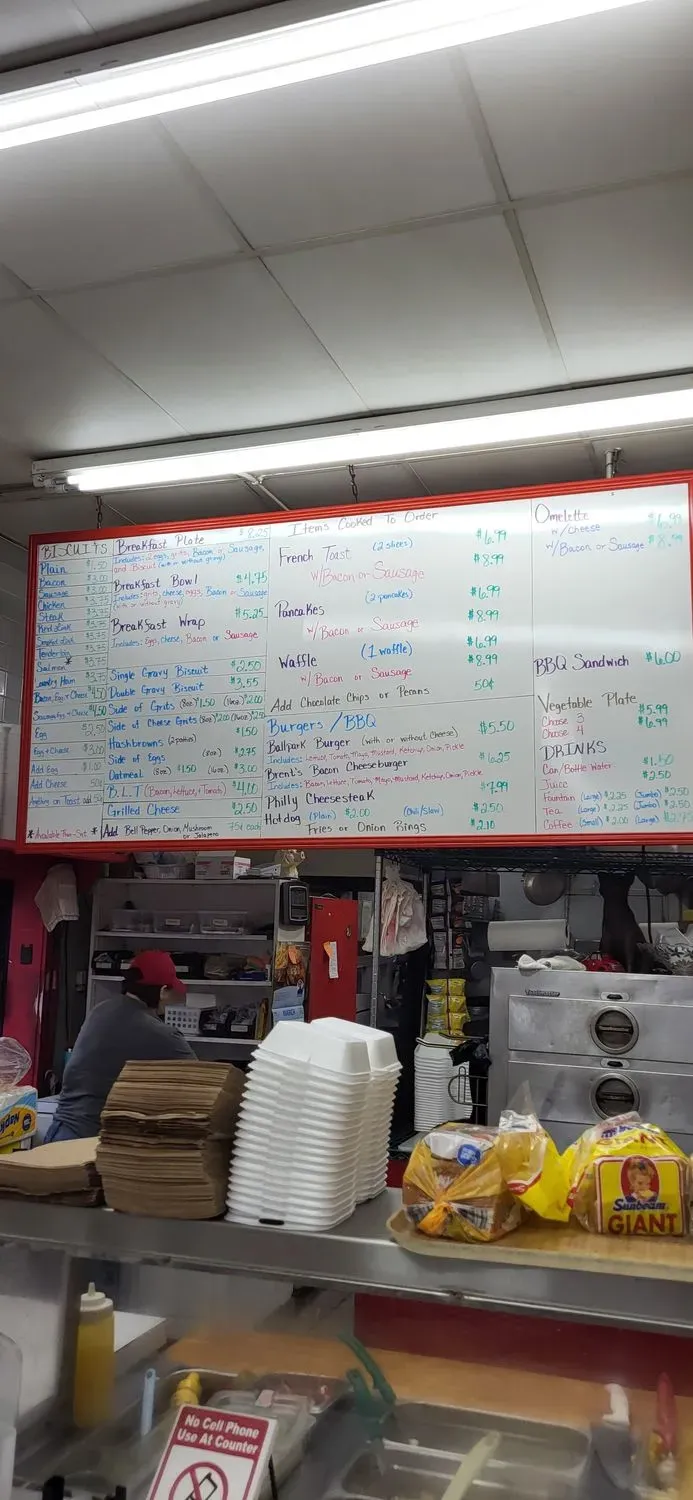 BISCUITS
Plain $1.50
Bacon $2.00
Sausage
Chicken
Steak $3.75
Red Link
Smoked Link
Tenderloin
Salmon* $3.75
Country Ham $3.75
Bacon, Egg + Cheese $4.50
Sausage, Egg + Cheese $4.50
Egg $2.50
Egg + Cheese $3.00
Add Egg $1.00
Add Cheese 50¢
Anything on Toast add 50¢
* Available Thur-Sat *
Breakfast Plate $8.25
Includes: 2 eggs, grits, Bacon or Sausage,
and Biscuit (with or without gravy)
Breakfast Bowl $4.75
Includes: grits, cheese, eggs, Bacon or Sausage
(with or without gravy)
Breakfast Wrap $5.25
Includes: Eggs, cheese, Bacon or Sausage
Single Gravy Biscuit $2.50
Double Gravy Biscuit $3.55
Side of Grits (8oz) $1.50 (16oz) $2.00
Side of Cheese Grits (8oz) $2.00 (16oz) $2.50
Hashbrowns (2 patties) $1.50
Side of Eggs (8oz) $2.75
Oatmeal (8oz) $1.50 (16oz) $3.00
B.L.T (Bacon, Lettuce, + Tomato) $4.00
Grilled Cheese $2.50
Add Bell Pepper, Onion, Mushroom 75¢ each
or Jalapeno
Items Cooked To Order
French Toast (2 slices) $6.99
w/Bacon or Sausage $8.99
Pancakes (2 pancakes) $6.99
w/Bacon or Sausage $8.99
Waffle (1 waffle) $6.99
w/Bacon or Sausage $8.99
Add Chocolate Chips or Pecans 50¢
Burgers/BBQ
Ballpark Burger (with or without Cheese) $5.50
Includes: Lettuce, Tomato, Mayo, Mustard, Ketchup, Onion, Pickle
Brent's Bacon Cheeseburger $6.25
Includes: Bacon, Lettuce, Tomato, Mayo, Mustard, Ketchup, Onion, Pickle
Philly Cheesesteak $7.99
Hotdog (Plain) $2.00 (Chili/Slaw) $2.50
Fries or Onion Rings $2.10
Omelette
w/cheese $6.99
w/Bacon or Sausage $8.99
BBQ Sandwich $6.00
Vegetable Plate
Choose 3 $5.99
Choose 4 $6.99
DRINKS
Can/Bottle Water $1.50
Juice $2.50
Fountain (Large) $2.25 (Jumbo) $2.50
Tea (Large) $2.25 (Jumbo) $2.50
Coffee (Small) $2.00 (Large)
Sunbeam
GIANT
No Cell Phone
Use At Counter